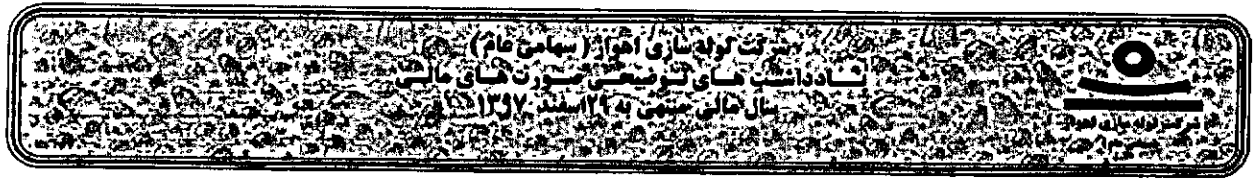 شرکت لوله سازی اهواز ( سهامی عام )
یادداشت هـای تـوضیحـی صـورت هـای مالـی
سال مالی منتهی به ۲۹ اسفند ۱۳۹۷
شرکت لوله سازی اهواز